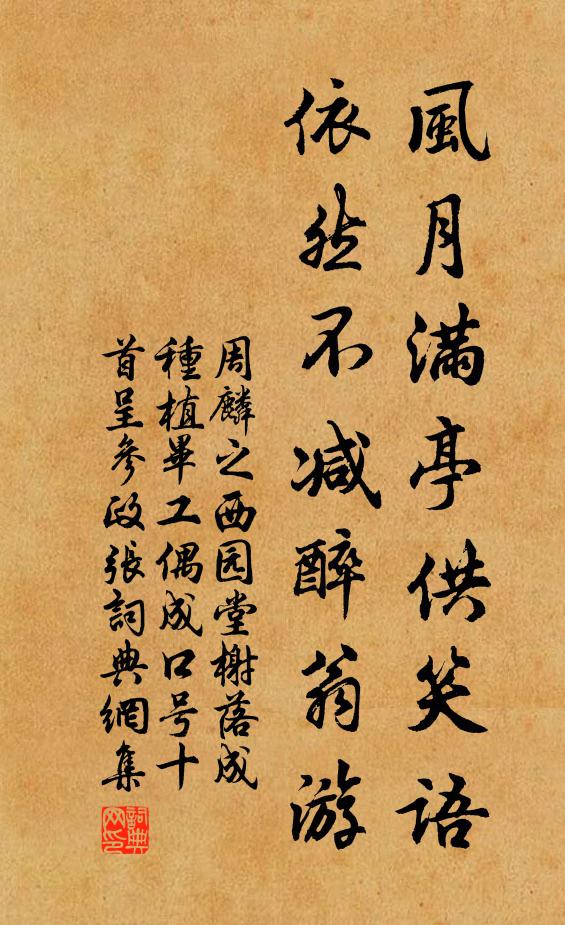 風月滿亭供笑語
依然不减醉翁游
周麟之西园堂榭落成
種植畢工偶成口号十
首呈參政張詞典網集
詞典
网印